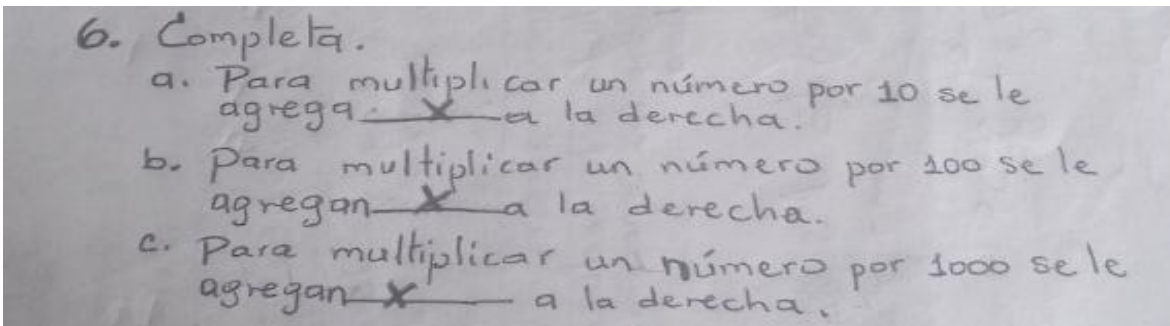 6. Completa.
a. Para multiplicar un número por 10 se le
agrega x a la derecha.
b. Para multiplicar un número por 100 se le
agregan x a la derecha.
c. Para multiplicar un número por 1000 se le
agregan x a la derecha.